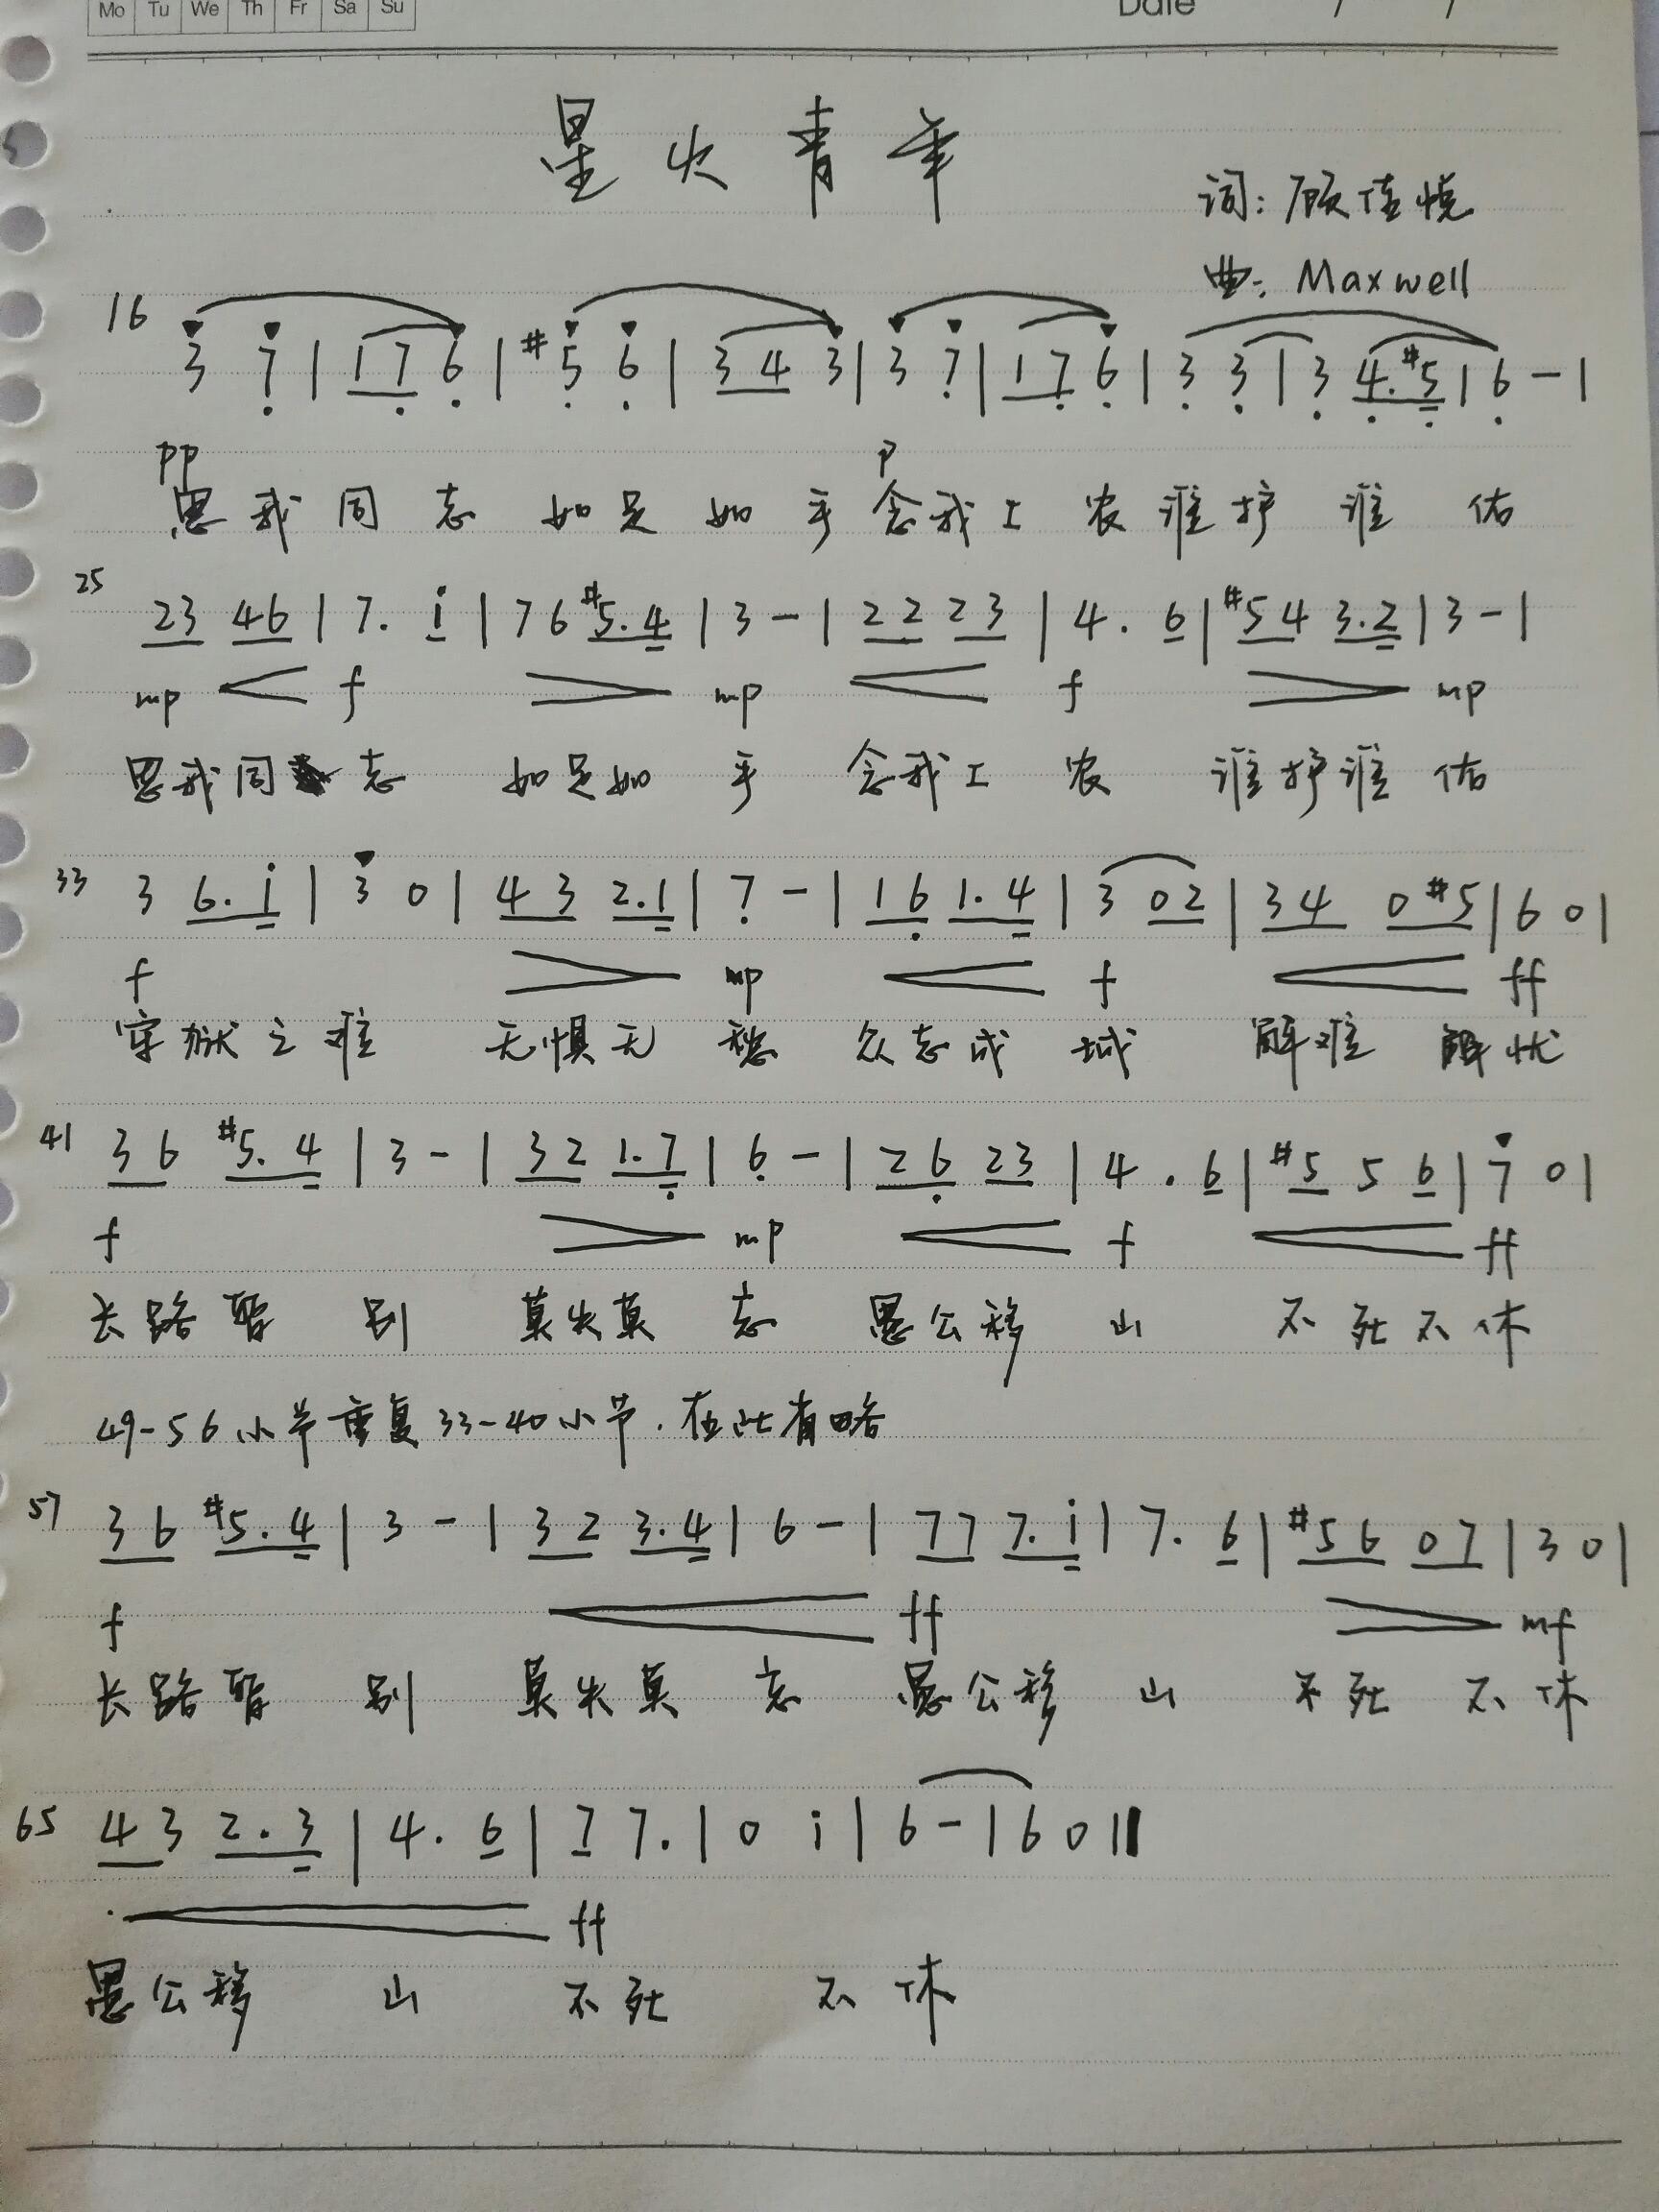 Mo Tu We Th Fr Sa Su
Date / /
星火青年
词: 顾佳悦
曲: Maxwell
16 3 7 | 1 7 6 | #5 6 | 3 4 3 | 3 7 | 1 7 6 | 3 3 | 3 4. #5 | 6 - |
pp p
思我同志 如足如手 念我工农 谁护谁佑
25 23 46 | 7. i | 7 6 #5.4 | 3 - | 22 23 | 4. 6 | #54 3.2 | 3 - |
mp < f > mp < f > mp
思我同志 如足如手 念我工农 谁护谁佑
33 3 6.i | 3 0 | 43 2.1 | 7 - | 16 1.4 | 3 02 | 34 0#5 | 6 0 |
f > mp < f < ff
牢狱之难 无惧无愁 众志成城 解难解忧
41 36 #5.4 | 3 - | 32 1.7 | 6 - | 26 23 | 4. 6 | #5 5 6 | 7 0 |
f > mp < f < ff
长路暂别 莫失莫忘 愚公移山 不死不休
49-56小节重复33-40小节.在此省略
57 36 #5.4 | 3 - | 32 3.4 | 6 - | 77 7.i | 7. 6 | #56 07 | 3 0 |
f < ff > mf
长路暂别 莫失莫忘 愚公移山 不死不休
65 43 2.3 | 4. 6 | 7 7. | 0 i | 6 - | 6 0 ‖
< ff
愚公移山 不死不休